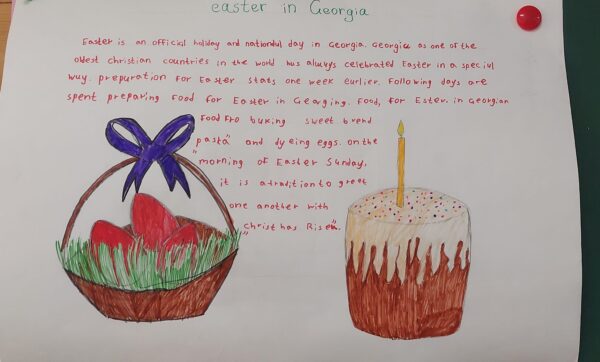 easter in Georgia
Easter is an official holiday and nationdul day in Georgia. Georgia as one of the
oldest Christian countries in the world hus always celebrated Easter in a speciul
wuy. preparution For Easter stats one week eurlier. Following days are
spent preparing Food For Easter in Georging. Food, for Ester. in Georgian
Food Fro buking sweet brend
pasta" and dyeing eggs. on the
"morning of Easter Sunday,
it is a tradition to greet
one another with
"Christ has Risen".